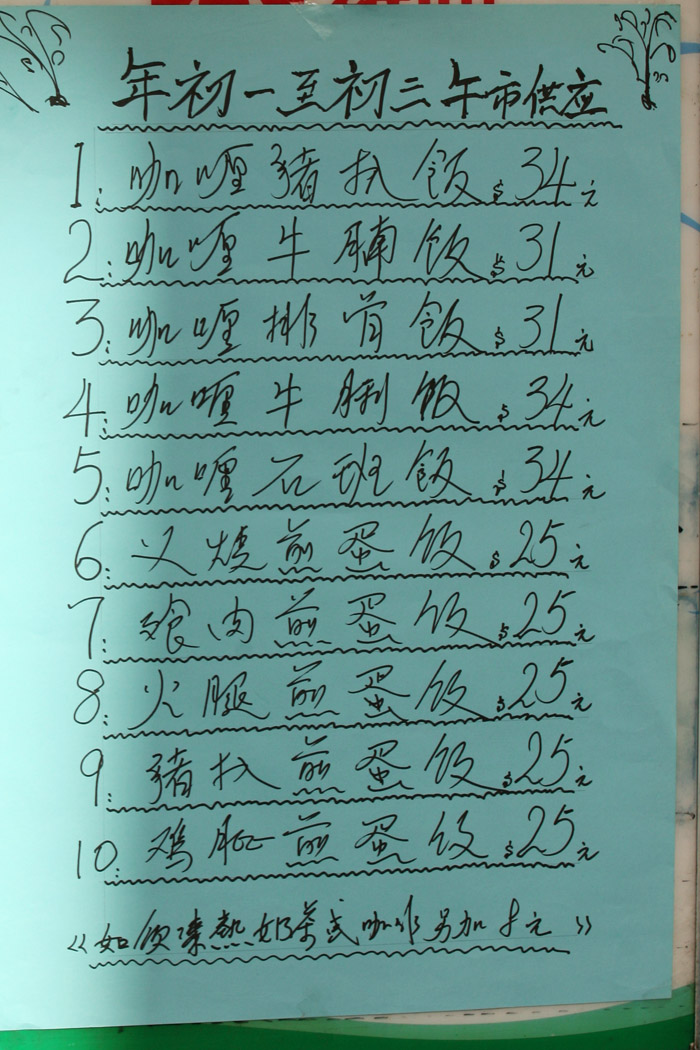 年初一至初三午市供应
1: 咖喱豬扒飯 $34元
2: 咖喱牛腩飯 $31元
3: 咖喱排骨飯 $31元
4: 咖喱牛脷飯 $34元
5: 咖喱石班飯 $34元
6: 叉燒煎蛋饭 $25元
7: 餐肉煎蛋饭 $25元
8: 火腿煎蛋饭 $25元
9: 豬扒煎蛋饭 $25元
10: 鸡煎蛋饭 $25元
《如熱奶茶或咖啡另加8元》